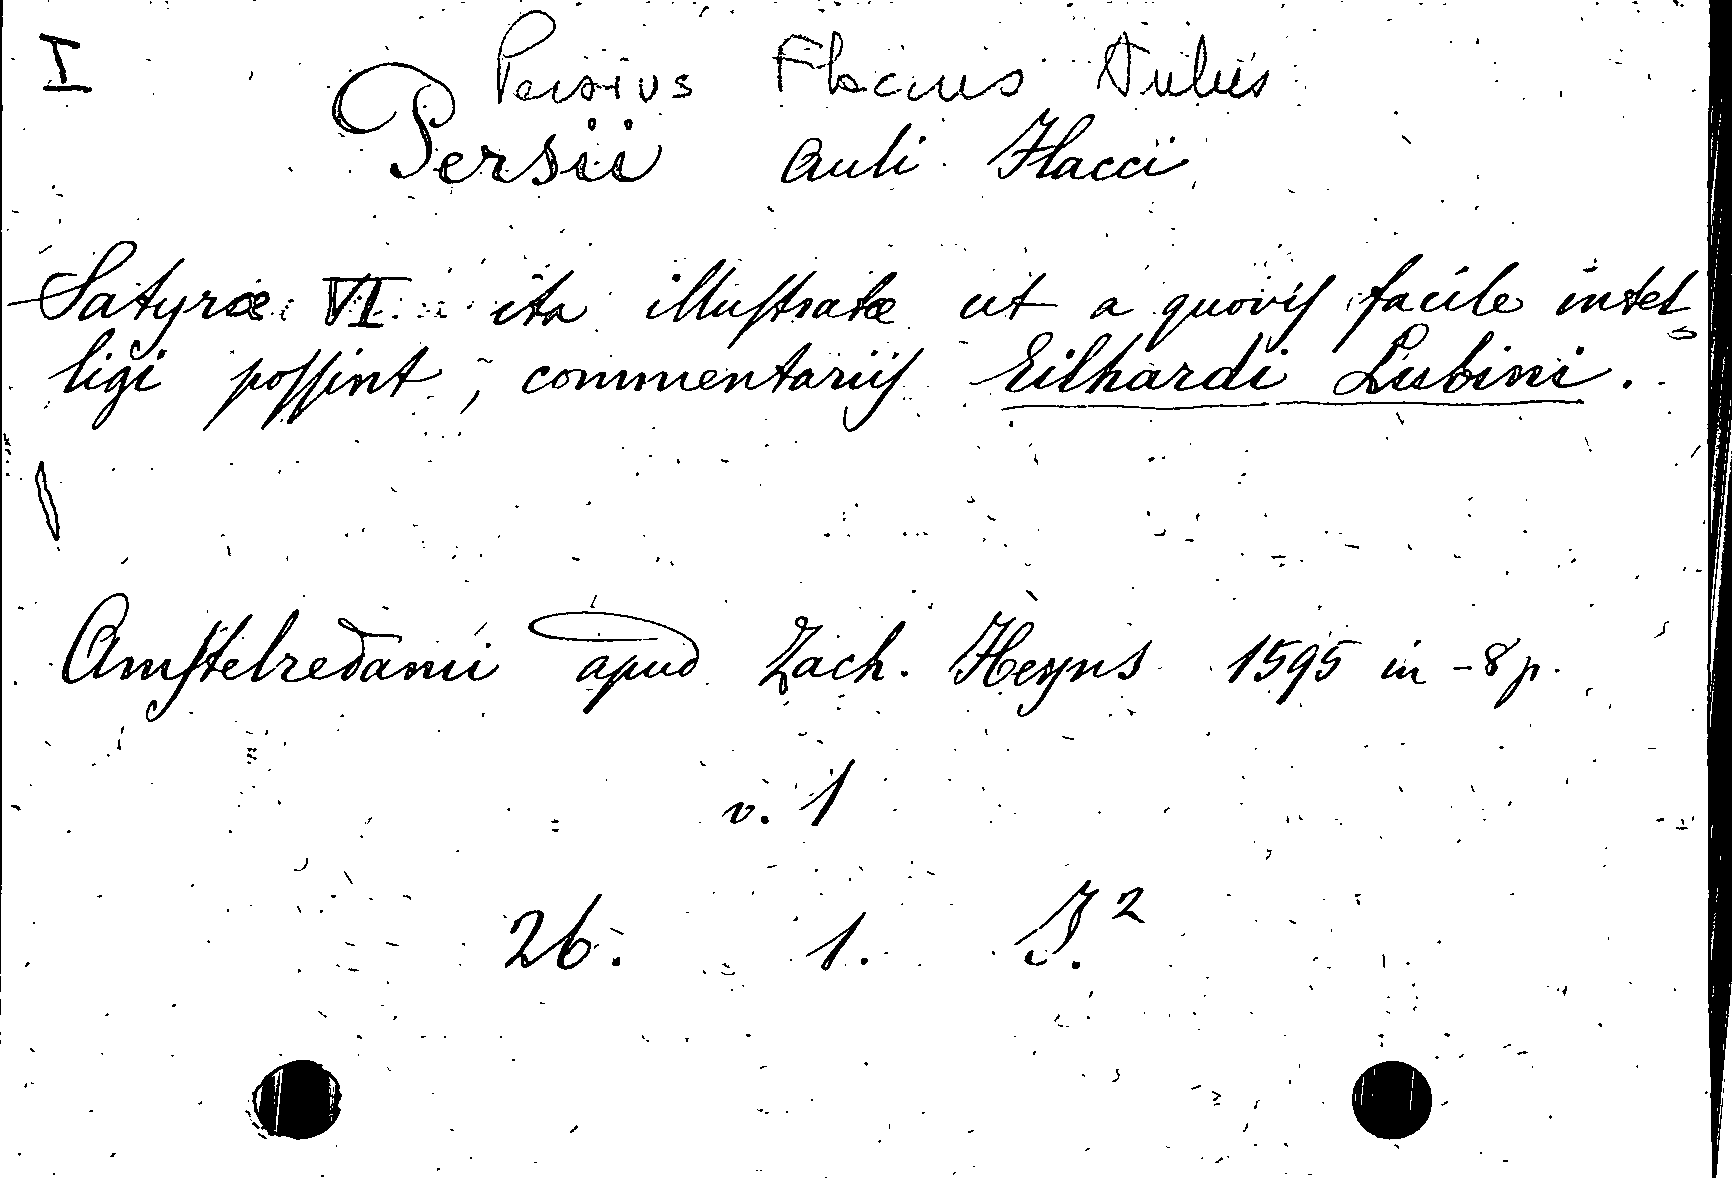 I
Persius Flaccus Aulus
Persii Auli Flacci
Satyræ VI ita illuſtratæ ut a quoviſ facile intel-
ligi poſſint, commentariiſ Eilhardi Lubini.
Amſtelredamii apud Zach. Heyns 1595 in-8p.
v. 1
26. 1. J.²